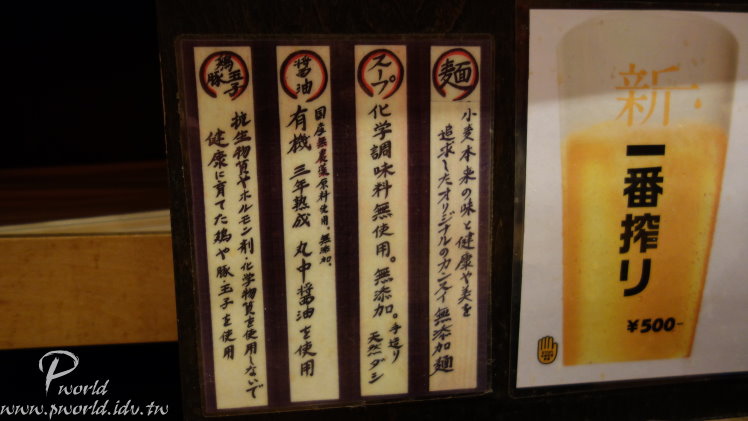 麺
小麦本来の味と健康や美を
追求したオリジナルのカンスイ無添加麺
スープ
化学調味料無使用。無添加。手造り
天然ダシ
醤油
国産無農薬原料使用。無添加。
有機 三年熟成 丸中醤油を使用
鶏豚玉子
抗生物質やホルモン剤・化学物質を使用しないで
健康に育てた鶏や豚玉子を使用
新・
一番搾り
¥500-
Pworld
www.pworld.idv.tw